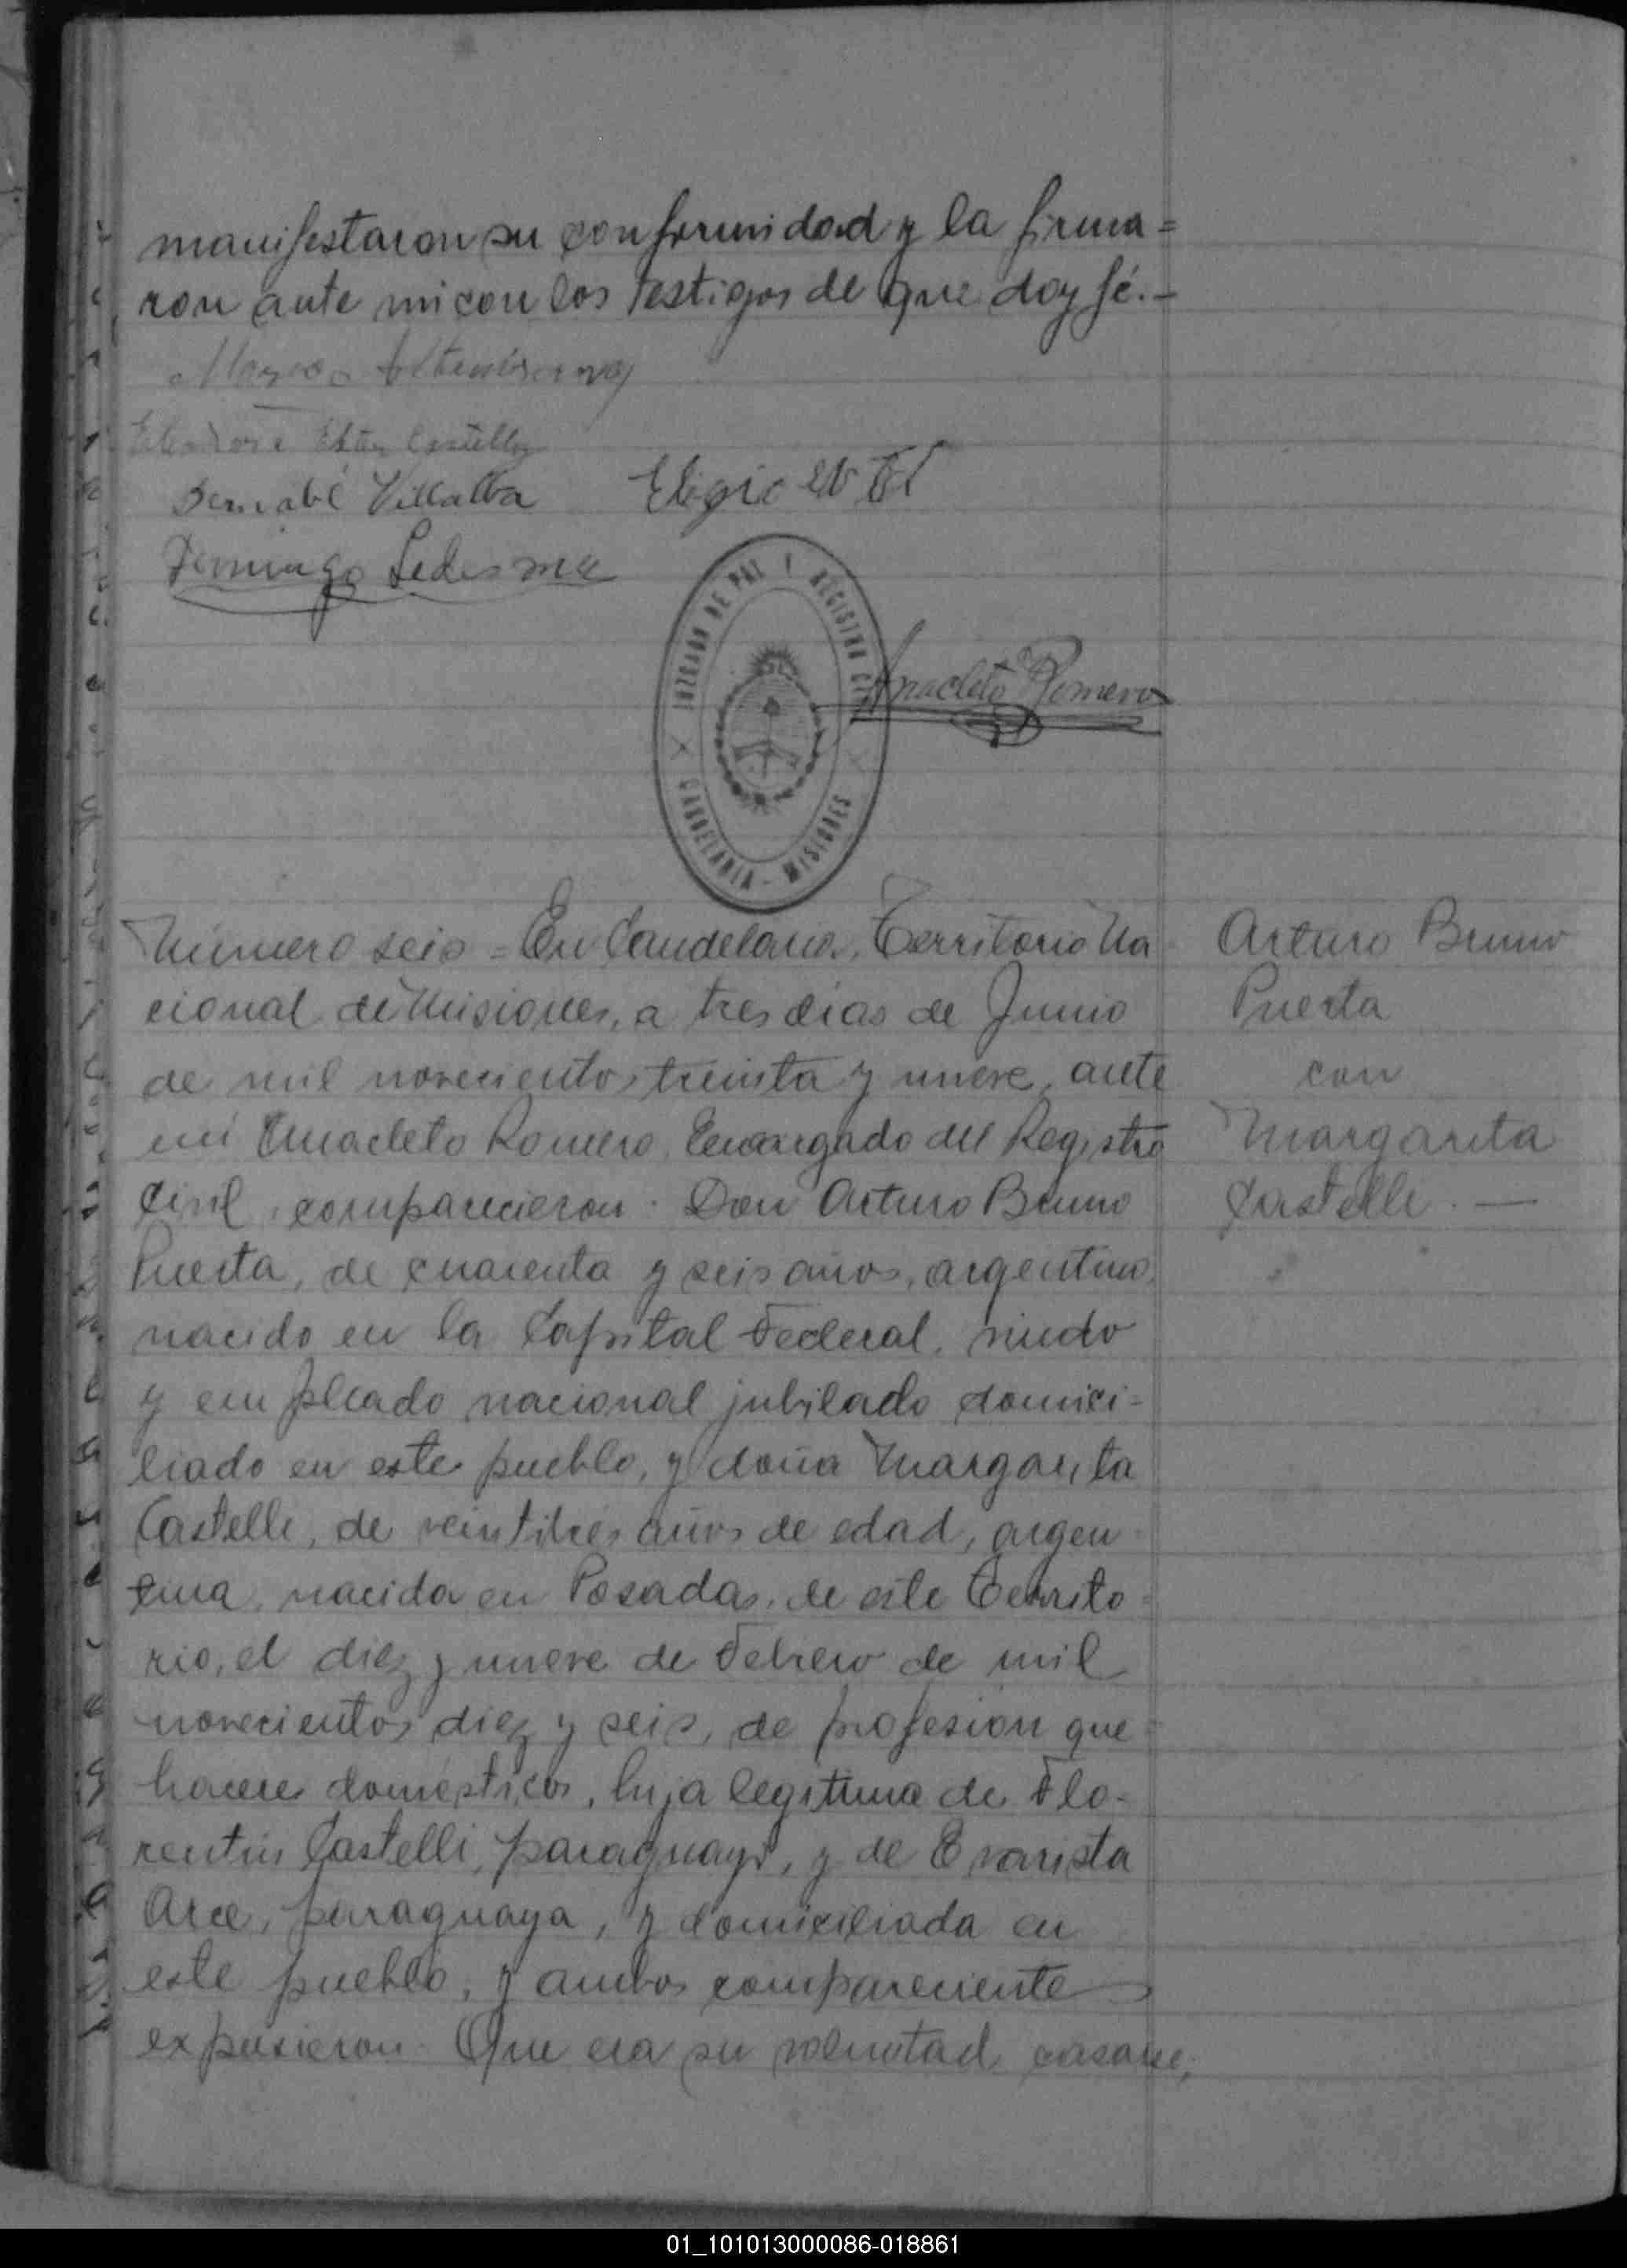 manifestaron su conformidad y la firma=
ron ante mi con los testigos de que doy fé.-
Bernabé Villalba
Domingo Ledesma
JUZGADO DE PAZ Y REGISTRO CIVIL
CANDELARIA - MISIONES
Anacleto Romero
Número seis = En Candelaria, Territorio Na
cional de Misiones, a tres dias de Junio
de mil novecientos treinta y nueve, ante
mi Anacleto Romero, Encargado del Registro
Civil, comparecieron: Don Arturo Bruno
Puerta, de cuarenta y seis años, argentino,
nacido en la Capital Federal, viudo
y empleado nacional jubilado domici-
liado en este pueblo, y doña Margarita
Castelli, de veintitres años de edad, argen
tina, nacida en Posadas, de este Territo=
rio, el diez y nueve de Febrero de mil
novecientos diez y seis, de profesión que=
haceres domésticos, hija legítima de Flo-
rentin Castelli, paraguayo, y de Evarista
Arce, paraguaya, y domiciliada en
este pueblo, y ambos comparecientes
expusieron: Que era su voluntad casarse,
Arturo Bruno
Puerta
con
Margarita
Castelli. —
01_101013000086-018861